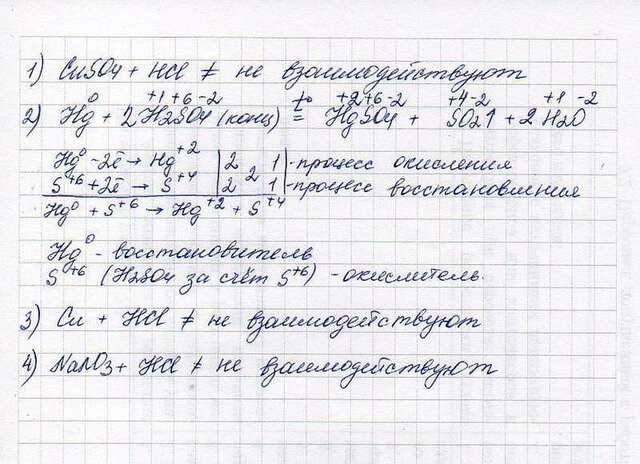 1) CuSO4 + HCl ≠ не взаимодействуют
0 +1 +6 -2 t° +2 +6 -2 +4 -2 +1 -2
2) Hg + 2H2SO4 (конц) = HgSO4 + SO2↑ + 2H2O
Hg⁰ - 2ē → Hg⁺² | 2 | 2 | 1 | - процесс окисления
S⁺⁶ + 2ē → S⁺⁴ | 2 | 1 | - процесс восстановления
Hg⁰ + S⁺⁶ → Hg⁺² + S⁺⁴
Hg⁰ - восстановитель
S⁺⁶ (H2SO4 за счёт S⁺⁶) - окислитель.
3) Cu + HCl ≠ не взаимодействуют
4) NaNO3 + HCl ≠ не взаимодействуют